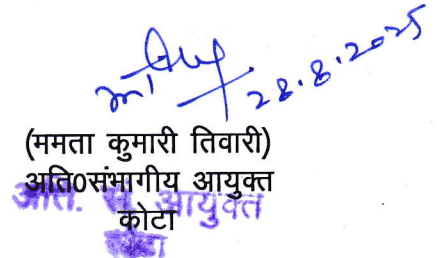 28.8.2025
(ममता कुमारी तिवारी)
अति0संभागीय आयुक्त
अति. सं. आयुक्त
कोटा
कोटा